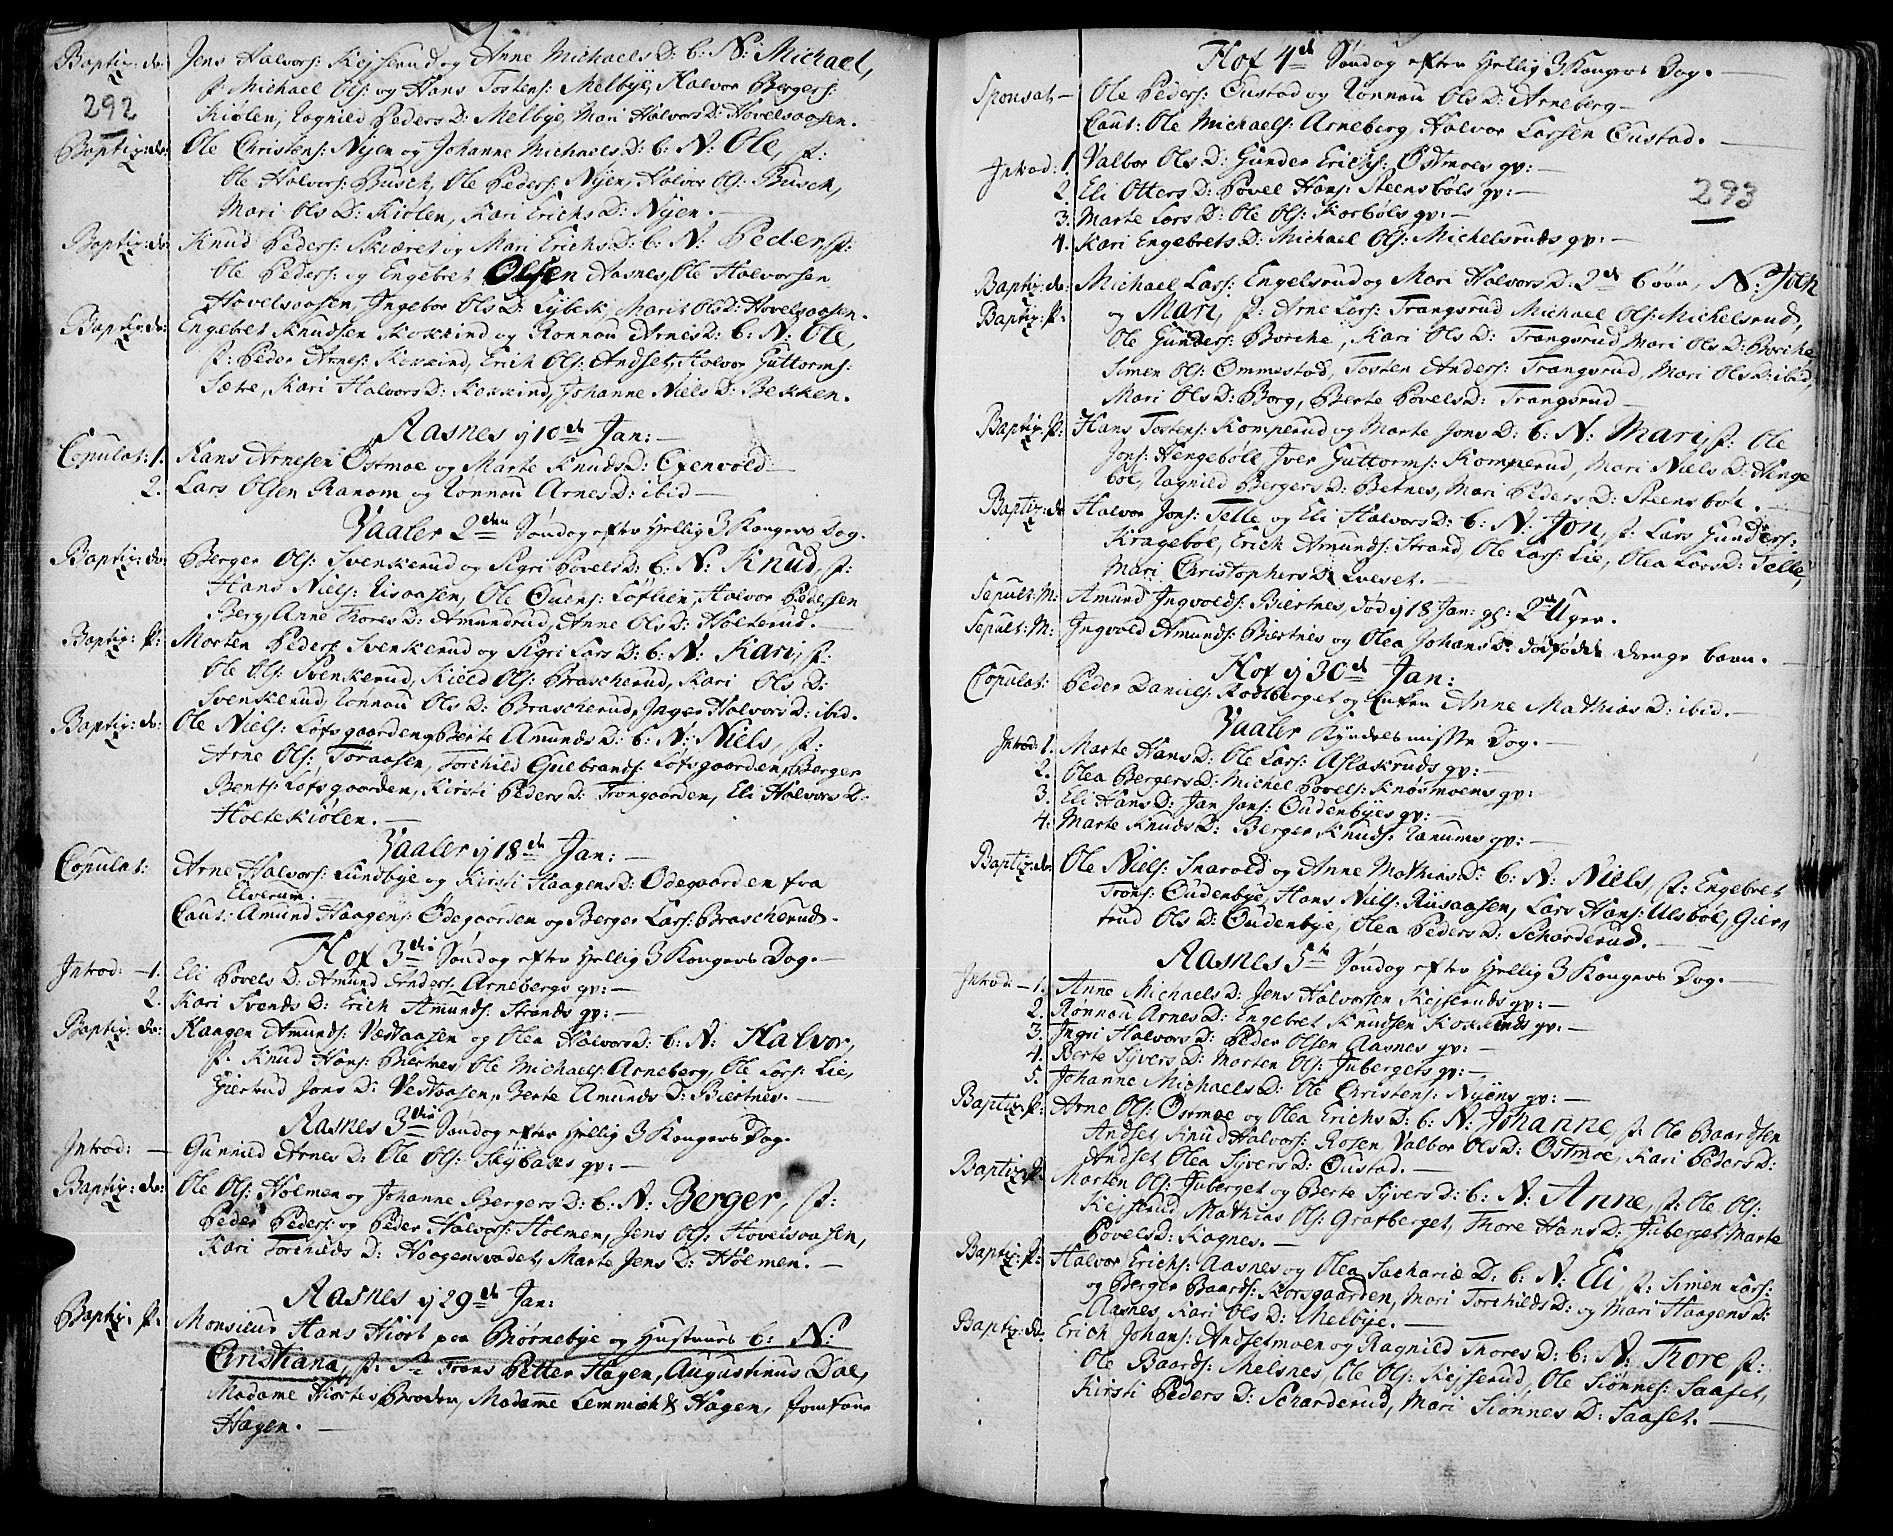 Baptiz: do: Jens Halvors: Kejserud og Anne Michaels D: b: N: Michael,
f: Michael Ols: og Hans Tostens: Melbye, Halvor Bergers:
292
Kiølen, Ragnild Peders D: Melbye, Mari Halvors D: Hovelsaasen.
Baptiz: do: Ole Christens: Nyen og Johanne Michaels D: b: N: Ole, f:
Ole Halvors: Busch, Ole Peders: Nyen, Halvor Ols: Busch,
Mari Ols D: Kiølen, Kari Erichs D: Nyen.
Baptiz: do: Knud Peders: Skiæret og Mari Erichs D: b: N: Peder f:
Ole Peders: og Engebret Olsen Aasnes, Ole Halvorsen
Hovelsaasen Ingebor Ols D: Lybek, Marit Ols D: Hovelsaasen.
Baptiz: do: Engebret Knudsen Kokkind og Rønnau Arnes D: b: N: Ole,
f: Peder Arnes: Kokkind, Erich Ols: Andset, Halvor Guttorms:
Sætre, Kari Halvors D: Kokkind, Johanne Niels D: Bekken.
Aasnes y 10de Jan:
Copulat: 1. Hans Arnesen Østmoe og Marte Knuds D: Oxenvold
2. Lars Olsen Ranom og Rønnau Arnes D: ibid
Vaaler 2den Søndag efter Hellig 3 Kongers Dag.
Baptiz: do: Berger Ols: Svenkerud og Sigri Povels D: b: N: Knud, f:
Hans Niels: Risaasen, Ole Ouens: Løflien, Halvor Pedersen
Berg, Anne Thores D: Amundrud, Anne Ols D: Holterud.
Baptiz: P: Morten Peders: Svenkerud og Sigri Lars D: b: N: Kari, f:
Ole Ols: Svenkerud, Kield Ols: Brascherud, Kari Ols D:
Svenkerud, Rønnau Ols D: Brascherud, Inger Halvors D: ibid.
Baptiz: do: Ole Niels: Lofsgaarden og Berte Amunds D: b: N: Niels, f:
Arne Ols: Toraasen, Torchild Gulbrands: Lofsgaarden, Berger
Bents: Lofsgaarden, Kirsti Peders D: Trongaarden, Eli Halvors D:
Holtekiølen.
Vaaler y 18de Jan:
Copulat: Arne Halvors: Lundbye og Kirsti Haagens D: Ødegaarden fra
Elverum.
Caut: Amund Haagens: Ødegaarden og Berger Lars: Brascherud.
Hof 3die Søndag efter Hellig 3 Kongers Dag.
Introd: 1. Eli Povels D: Amund Anders: Arnebergs gv:
2. Kari Svends D: Erich Amunds: Strands gv:
Baptiz: do: Haagen Amunds: Vestaasen og Olea Halvors D: b: N: Halvor,
f: Knud Hans: Biertnes, Ole Michaels: Arneberg, Ole Lars: Lie,
Giertrud Jons D: Vestaasen, Berte Amunds D: Biertnes.
Aasnes 3die Søndag efter Hellig 3 Kongers Dag.
Introd: Gunnild Arnes D: Ole Ols: Skybaks gv:
Baptiz: do: Ole Ols: Holmen og Johanne Bergers D: b: N: Berger, f:
Peder Peders: og Peder Halvors: Holmen, Jens Ols: Hovelsaasen,
Kari Torchilds D: Haagensvadet, Marte Jens D: Holmen.
Aasnes y 29de Jan:
Baptiz: P: Monsieur Hans Hiort paa Biørnebye og Hustrues b: N:
Christiana, f: Sr Trons Petter Hagen, Augustinus Dal,
Madame Hiortes Broder, Madame Lemmich & Hagen, Jomfrue
Hagen.
Hof 4de Søndag efter Hellig 3 Kongers Dag.
Sponsat Ole Peders: Oustad og Rønnau Ols D: Arneberg
Caut: Ole Michaels: Arneberg, Halvor Larsen Oustad.
Introd: 1. Valbor Ols D: Gunder Erichs: Østmoes gv:
293
2. Eli Otters D: Povel Hans: Steensbøls gv:
3. Marte Lars D: Ole Ols: Korbøls gv:
4. Kari Engebrets D: Michael Ols: Michelsruds gv:
Baptiz: do: Michael Lars: Engelsrud og Mari Halvors D: 2de børn, N: Joch
Baptiz: P: og Mari, f: Arne Lars: Trangsrud Michael Ols: Michelsrud,
Ole Gunders: Borche, Kari Ols D: Trangsrud, Mari Ols D: Borche
Simen Ols: Ommestad, Tosten Anders: Trangsrud, Mari Ols D: ibid,
Mari Ols D: Borg, Berte Povels D: Trangsrud
Baptiz: P: Hans Tostens: Komperud og Marte Jons D: b: N: Mari, f: Ole
Jons: Hengebøll Iver Guttorms: Komperud, Mari Niels D: Henge
bøl, Ragnild Bergers D: Betnes, Mari Peders D: Steensbøl.
Baptiz: do Halvor Jons: Telle og Eli Halvors D: b: N: Jon, f: Lars Gunders:
Kragebøl, Erich Amunds: Strand, Ole Lars: Lie, Olea Lars D: Telle,
Mari Christophers D: Kveset.
Sepult: M: Amund Ingvolds: Biertnes død y 18 Jan: gl: 2 Uger.
Sepult: M: Ingvold Amunds: Biertnes og Olea Johans D: dødfødde drenge barn.
Hof y 30de Jan:
Copulat: Peder Daniels: Rodberget og Enken Anne Mathias D: ibid.
Vaaler Kyndelmisse Dag.
Introd: 1. Marte Hans D: Ole Lars: Aslakruds gv:
2. Olea Bergers D: Michel Povels: Knøsmoens gv:
3. Eli Hans D: Jan Jans: Oudenbyes gv:
4. Marte Knuds D: Berger Knuds: Ranums gv:
Baptiz: do: Ole Niels: Snarold og Anne Mathias D: b: N: Niels, f: Engebret
Trons: Oudenbye, Hans Niels: Riisaasen, Lars Hans: Ulsbøl, Gier
trud Ols D: Oudenbye, Olea Peders D: Scharderud.
Aasnes 5te Søndag efter Hellig 3 Kongers Dag.
Introd: 1. Anne Michaels D: Jens Halvorsen Kejseruds gv:
2. Rønnau Arnes D: Engebret Knudsen Kokkinds gv:
3. Ingri Halvors D: Peder Olsen Aasnes gv:
4. Berte Syvers D: Morten Ols: Jubergets gv:
5. Johanne Michaels D: Ole Christens: Nyens gv:
Baptiz: P: Arne Ols: Østmoe og Olea Erichs D: b: N: Johanne, f: Ole Baardsen
Andset, Knud Halvors: Rosen, Valbor Ols D: Østmoe, Kari Peders D:
Andset Olea Syvers D: Oustad.
Baptiz: P: Morten Ols: Juberget og Berte Syvers D: b: N: Anne, f: Ole Ols:
Kejserud Mathias Ols: Gratberget, Thore Hans D: Juberget Marte
Povels D: Kagnes.
Baptiz: P: Halvor Erichs: Aasnes og Olea Sachariæ D: b: N: Eli f: Simen Lars:
og Berger Baards: Korsgaarden, Mari Torchilds D: og Mari Haagens D:
Aasnes, Kari Ols D: Melbye.
Baptiz: do. Erich Johans: Andsetmoen og Ragnild Thores D: b: N: Thore f:
Ole Baards: Melsnes, Ole Ols: Kejserud, Ole Siønnes: Saaset,
Kirsti Peders D: Scharderud, Mari Sionnes D: Saaset.